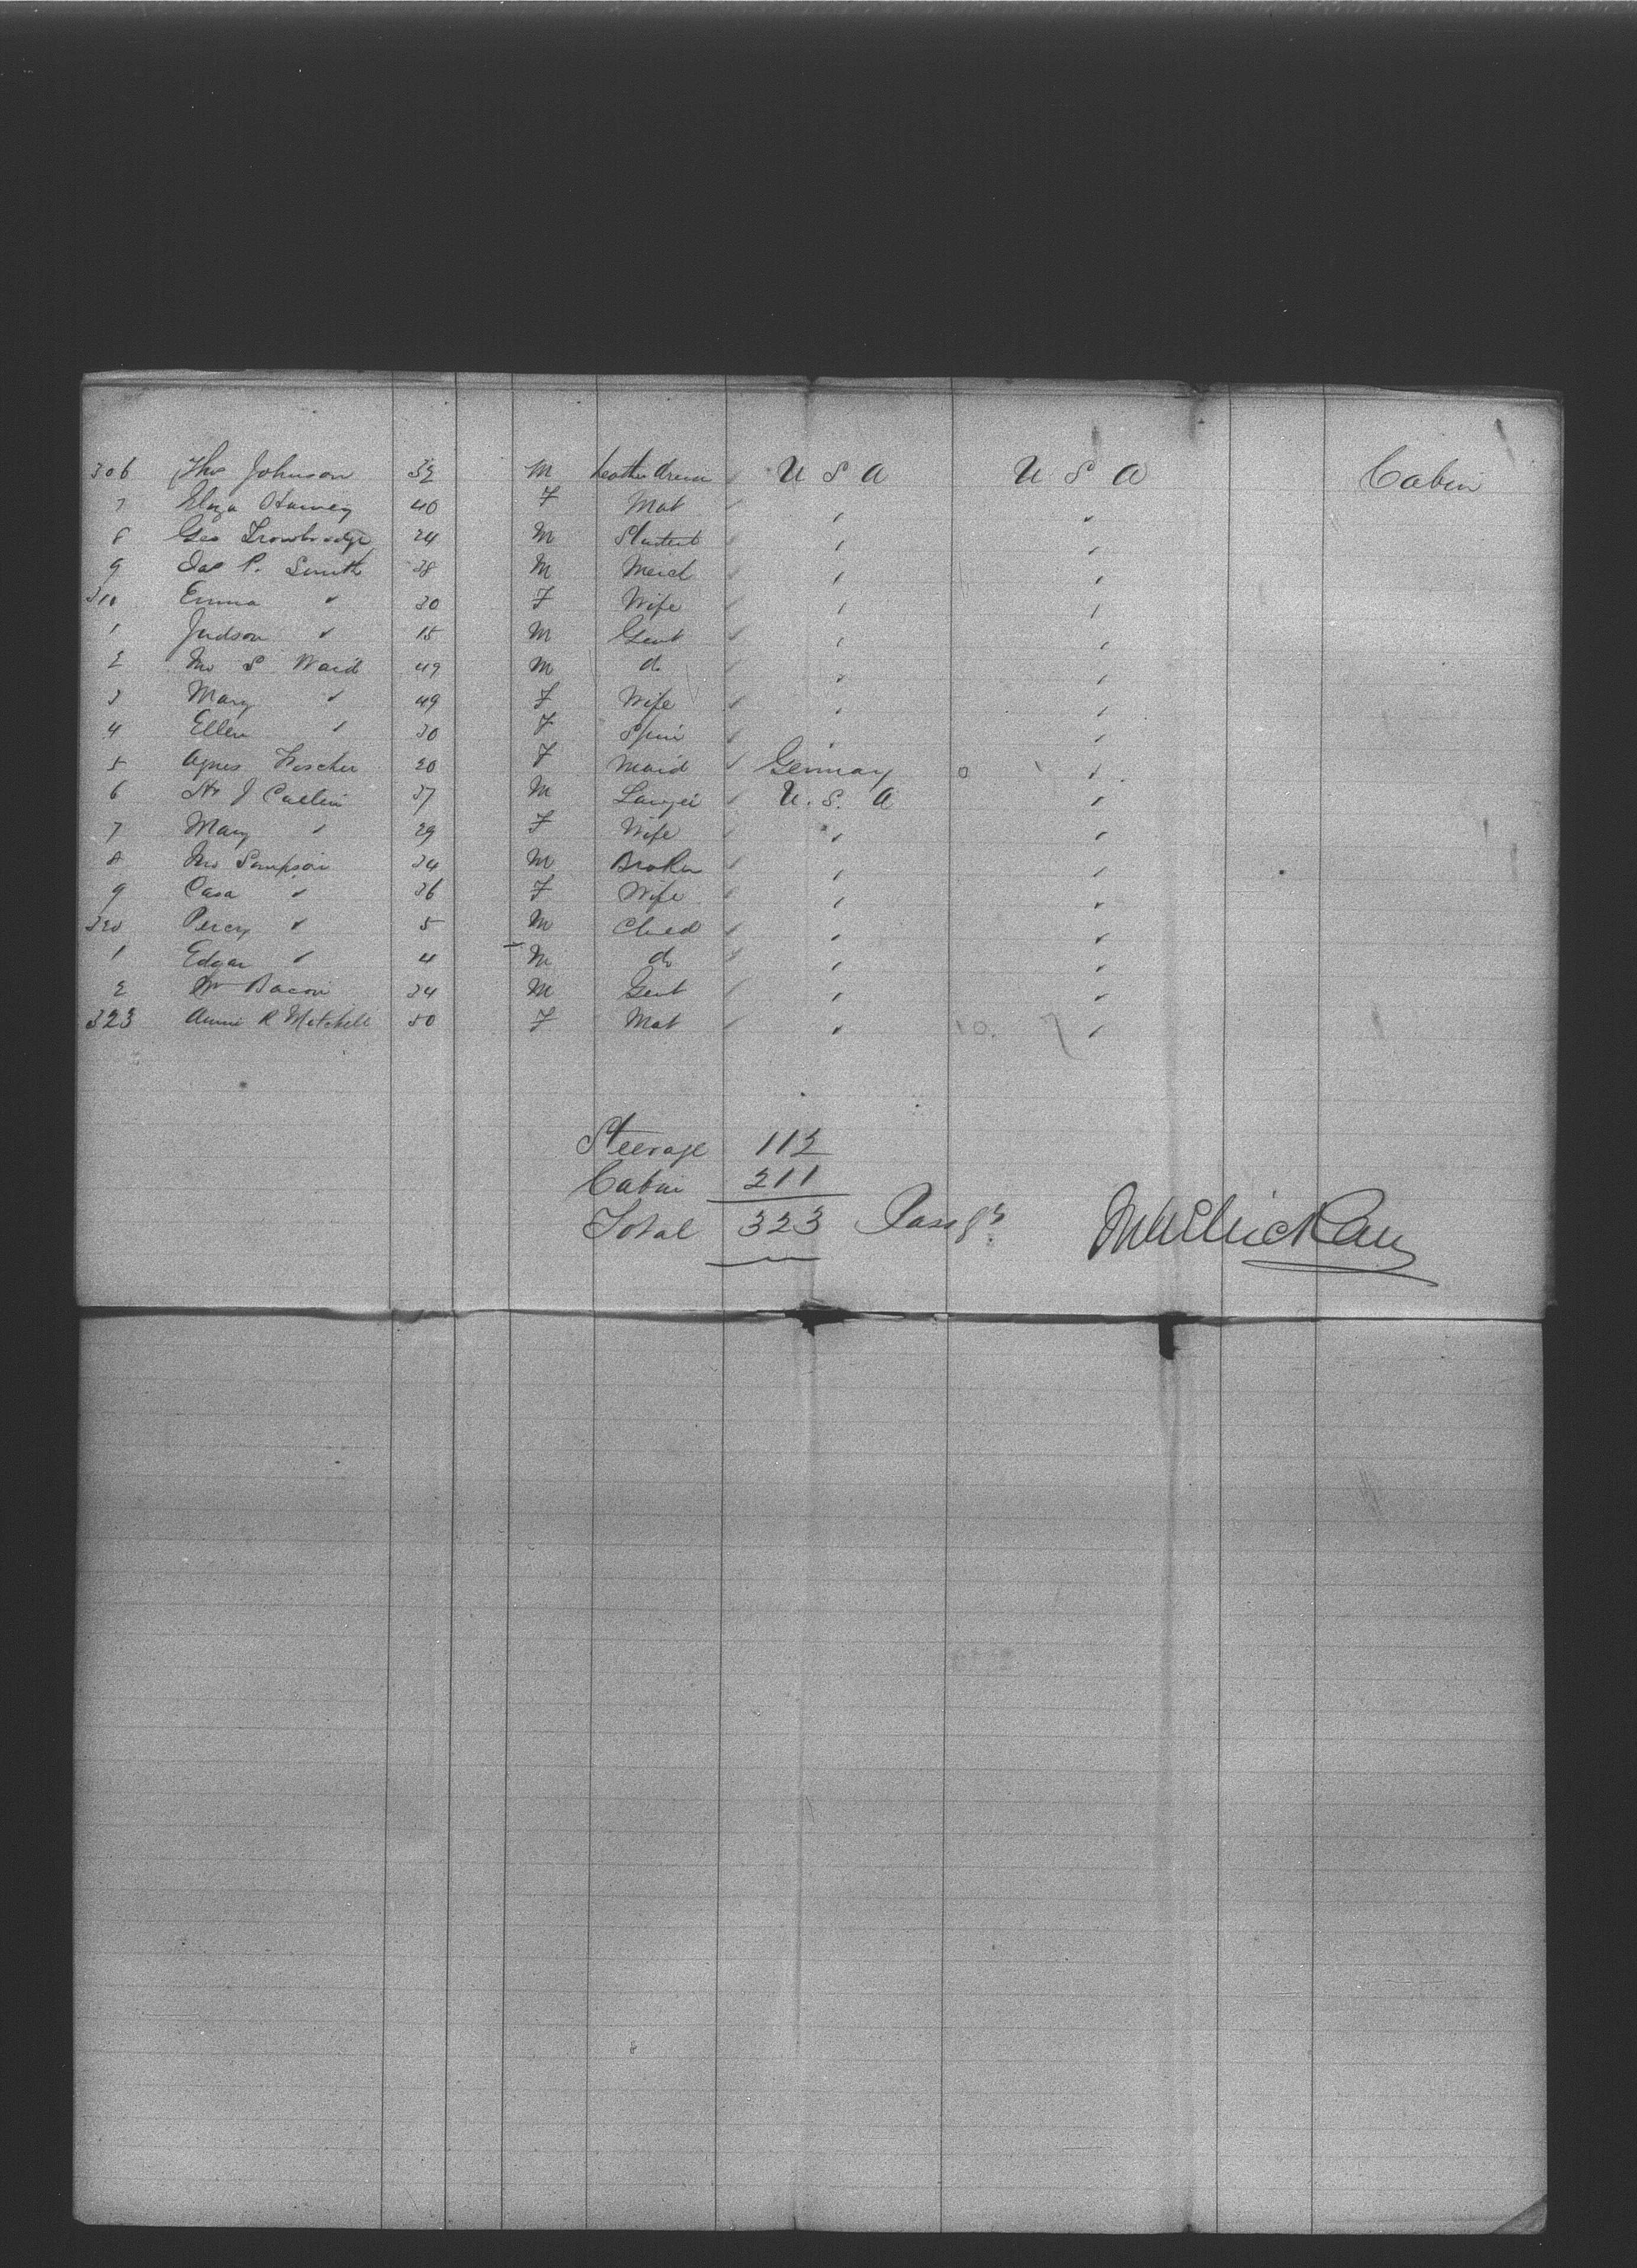 306 Thos Johnson 52 M Leather U S A U S A Cabin
7 Eliza Harvey 40 F Mat " "
8 Geo Trowbridge 24 M Student " "
9 Jas P. Smith 38 M Merch " "
310 Emma " 30 F Wife " "
1 Judson " 15 M Gent " "
2 Jno S Ward 49 M do " "
3 Mary " 49 F Wife " "
4 Ellen " 30 F Spin " "
5 Agnes Fischer 20 F Maid Germany 0 "
6 J 37 M Lawyer U. S. A "
7 Mary " 29 F Wife " "
8 Jno Sampson 34 M Broker " "
9 " 36 F Wife " "
320 Percy " 5 M Child " "
1 Edgar " 4 M do " "
2 Wm Bacon 34 M Gent " "
323 Annie R Mitchell 50 F Mat " 10. 7 "
Steerage 112
Cabin 211
Total 323 Passgrs